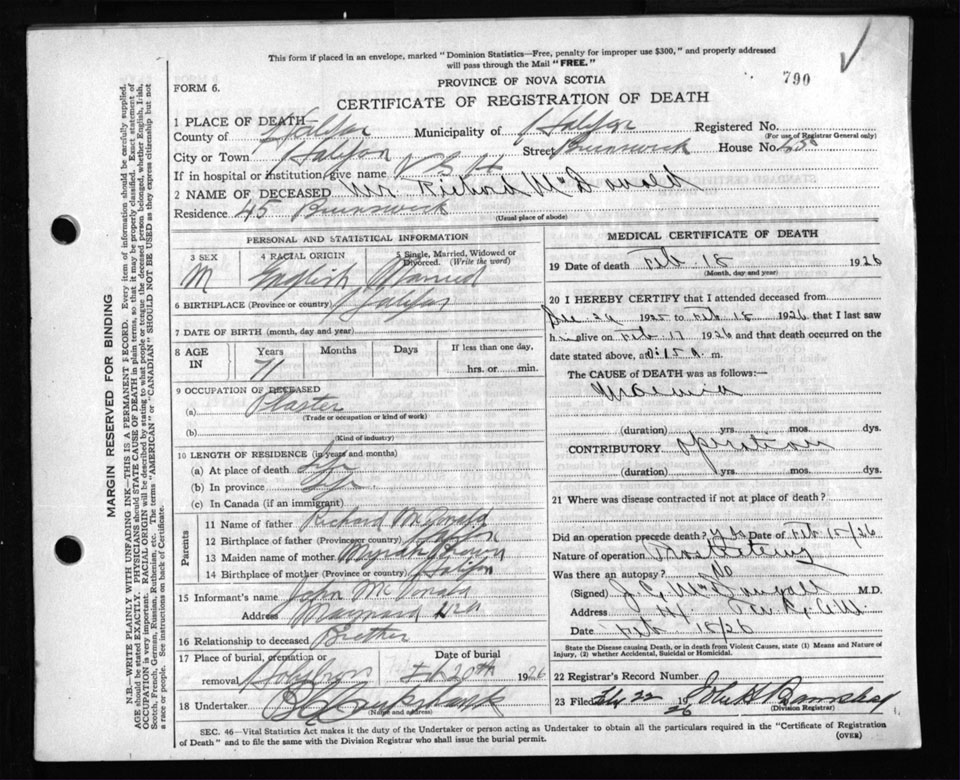 This form if placed in an envelope, marked "Dominion Statistics—Free, penalty for improper use $300," and properly addressed
will pass through the Mail "FREE."
790
PROVINCE OF NOVA SCOTIA
FORM 6.
CERTIFICATE OF REGISTRATION OF DEATH
1 PLACE OF DEATH—
County of Halifax Municipality of Halifax Registered No.
(For use of Registrar General only)
City or Town Halifax Street Brunswick House No.
If in hospital or institution, give name V G H
2 NAME OF DECEASED Mr. Richard McDonald
Residence 45 Brunswick
(Usual place of abode)
PERSONAL AND STATISTICAL INFORMATION
3 SEX M
4 RACIAL ORIGIN English
5 Single, Married, Widowed or Divorced. (Write the word) Married
6 BIRTHPLACE (Province or country) Halifax
7 DATE OF BIRTH (month, day and year)
8 AGE IN Years 71 Months Days If less than one day, hrs. or min.
9 OCCUPATION OF DECEASED
(a) Plaster
(Trade or occupation or kind of work)
(b)
(Kind of industry)
10 LENGTH OF RESIDENCE (in years and months)
(a) At place of death Life
(b) In province Life
(c) In Canada (if an immigrant)
Parents
11 Name of father Richard McDonald
12 Birthplace of father (Province or country) Halifax
13 Maiden name of mother Myriah Brown
14 Birthplace of mother (Province or country) Halifax
15 Informant's name John McDonald
Address Maynard
16 Relationship to deceased Brother
17 Place of burial, cremation or removal Halifax Date of burial Feb 20th 1926
18 Undertaker
(Name and address)
MEDICAL CERTIFICATE OF DEATH
19 Date of death Feb 18 1926
(Month, day and year)
20 I HEREBY CERTIFY that I attended deceased from
Dec 24 1925 to Feb 18 1926 that I last saw
him alive on Feb 17 1926 and that death occurred on the
date stated above, at m.
The CAUSE OF DEATH was as follows:—
Uraemia
(duration) yrs. mos. dys.
CONTRIBUTORY operation
(duration) yrs. mos. dys.
21 Where was disease contracted if not at place of death?
Did an operation precede death? yes Date of Feb 15/26
Nature of operation
Was there an autopsy? No
(Signed) McDougall M.D.
Address
Date Feb 18/26
State the Disease causing Death, or in death from Violent Causes, state (1) Means and Nature of
Injury, (2) whether Accidental, Suicidal or Homicidal.
22 Records Record Number
23 Filed Feb 22 1926 John
(Division Registrar)
SEC. 46—Vital Statistics Act makes it the duty of the Undertaker or person acting as Undertaker to obtain all the particulars required in the "Certificate of Registration
of Death" and to file the same with the Division Registrar who shall issue the burial permit.
(OVER)
MARGIN RESERVED FOR BINDING
N.B.—WRITE PLAINLY WITH UNFADING INK—THIS IS A PERMANENT RECORD. Every item of information should be carefully supplied.
AGE should be stated EXACTLY. PHYSICIANS should STATE CAUSE OF DEATH in plain terms, so that it may be properly classified. Exact statement of
OCCUPATION is very important. RACIAL ORIGIN will be described by stating to what people or tongue the deceased person belonged, whether English, Irish,
Scotch, French, German, Russian, Ruthenian, etc. The terms "AMERICAN" or "CANADIAN" SHOULD NOT BE USED as they express citizenship but not
a race or people. See instructions on back of Certificate.